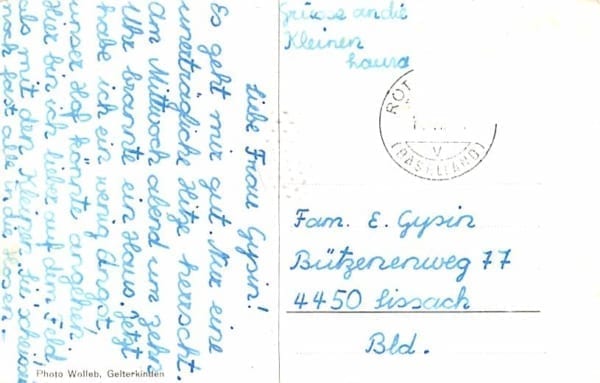 Liebe Frau Gysin!
Es geht mir gut. Nur eine
unerträgliche Hitze herrscht.
Am Mittwoch abend um zehn
Uhr brannte ein Haus. Jetzt
habe ich ein wenig Angst,
unser Hof könnte angehen.
Hier bin ich lieber auf dem Feld
als mit den
noch fast alle in die Hosen.
Grüsse an die
Kleinen
Laura
ROT
V
(BASELLAND)
Fam. E. Gysin
Bützenenweg 77
4450 Sissach
Bld.
Photo Wolleb, Gelterkinden